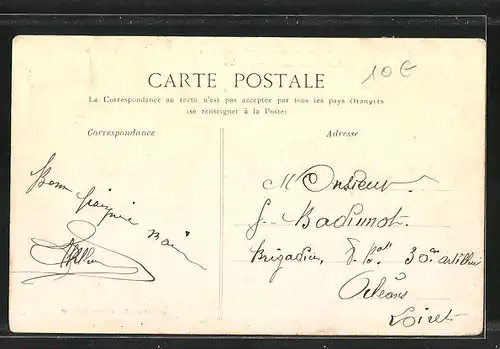 CARTE POSTALE
10€
La Correspondance au recto n'est pas acceptée par tous les pays étrangers
(se renseigner à la Poste)
Correspondance
Adresse
Bonne poignée main
Monsieur
Badimot
Brigadier, 30me artillerie
Orléans
Loiret